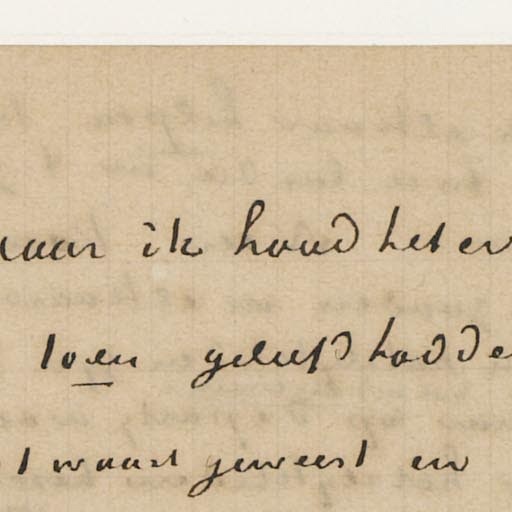 maar ik houd het er
toen geleefd hadde
t waart geweest en